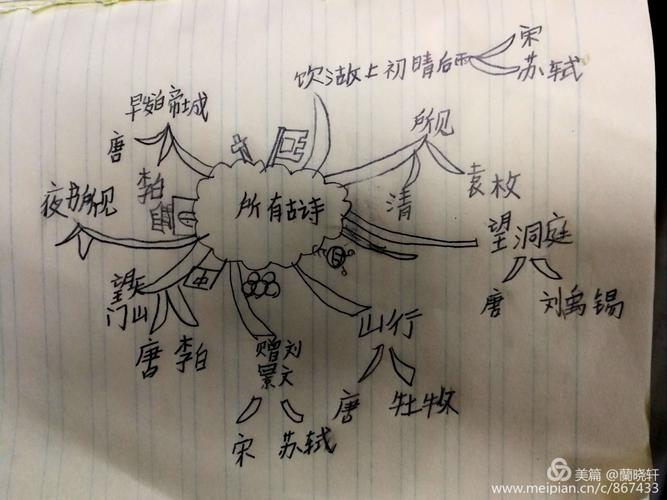 饮湖上初晴后雨
宋
苏轼
早发白帝城
唐
李白
所见
清
袁枚
夜书所见
所有古诗
望洞庭
唐 刘禹锡
望天
门山
唐 李白
中
山行
唐 牡牧
赠刘
景文
宋 苏轼
美篇 @蘭晓轩
www.meipian.cn/c/867433